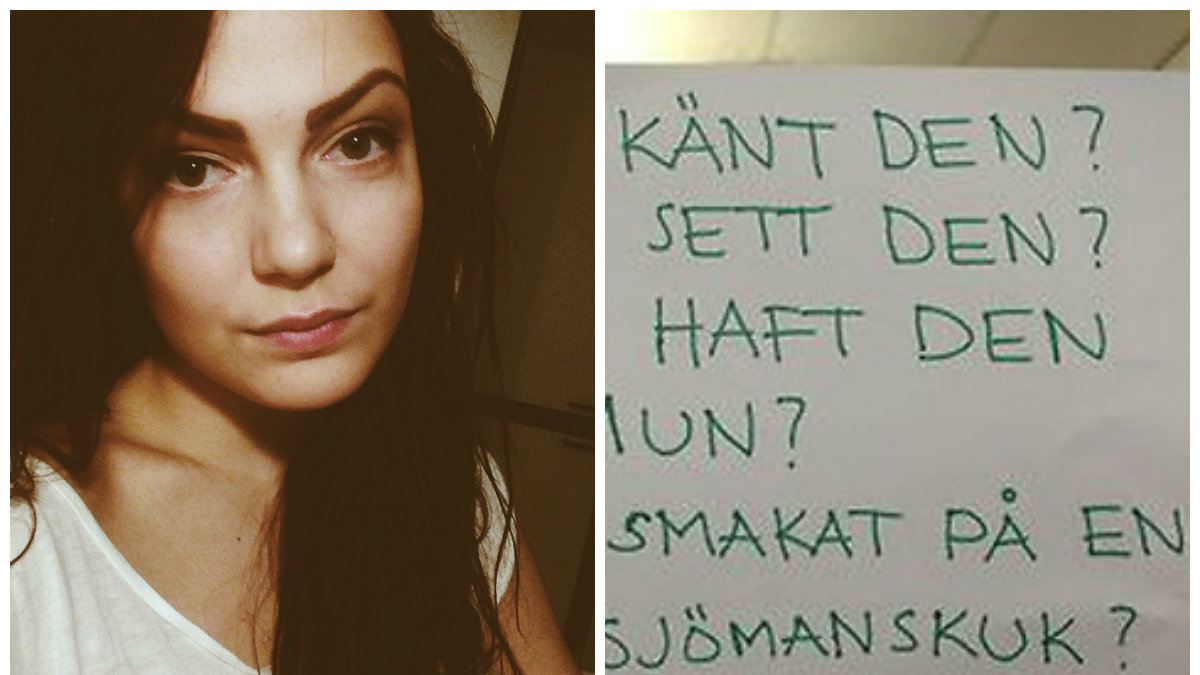 KÄNT DEN?
SETT DEN?
HAFT DEN
UN?
SMAKAT PÅ EN
SJÖMANSKUK?